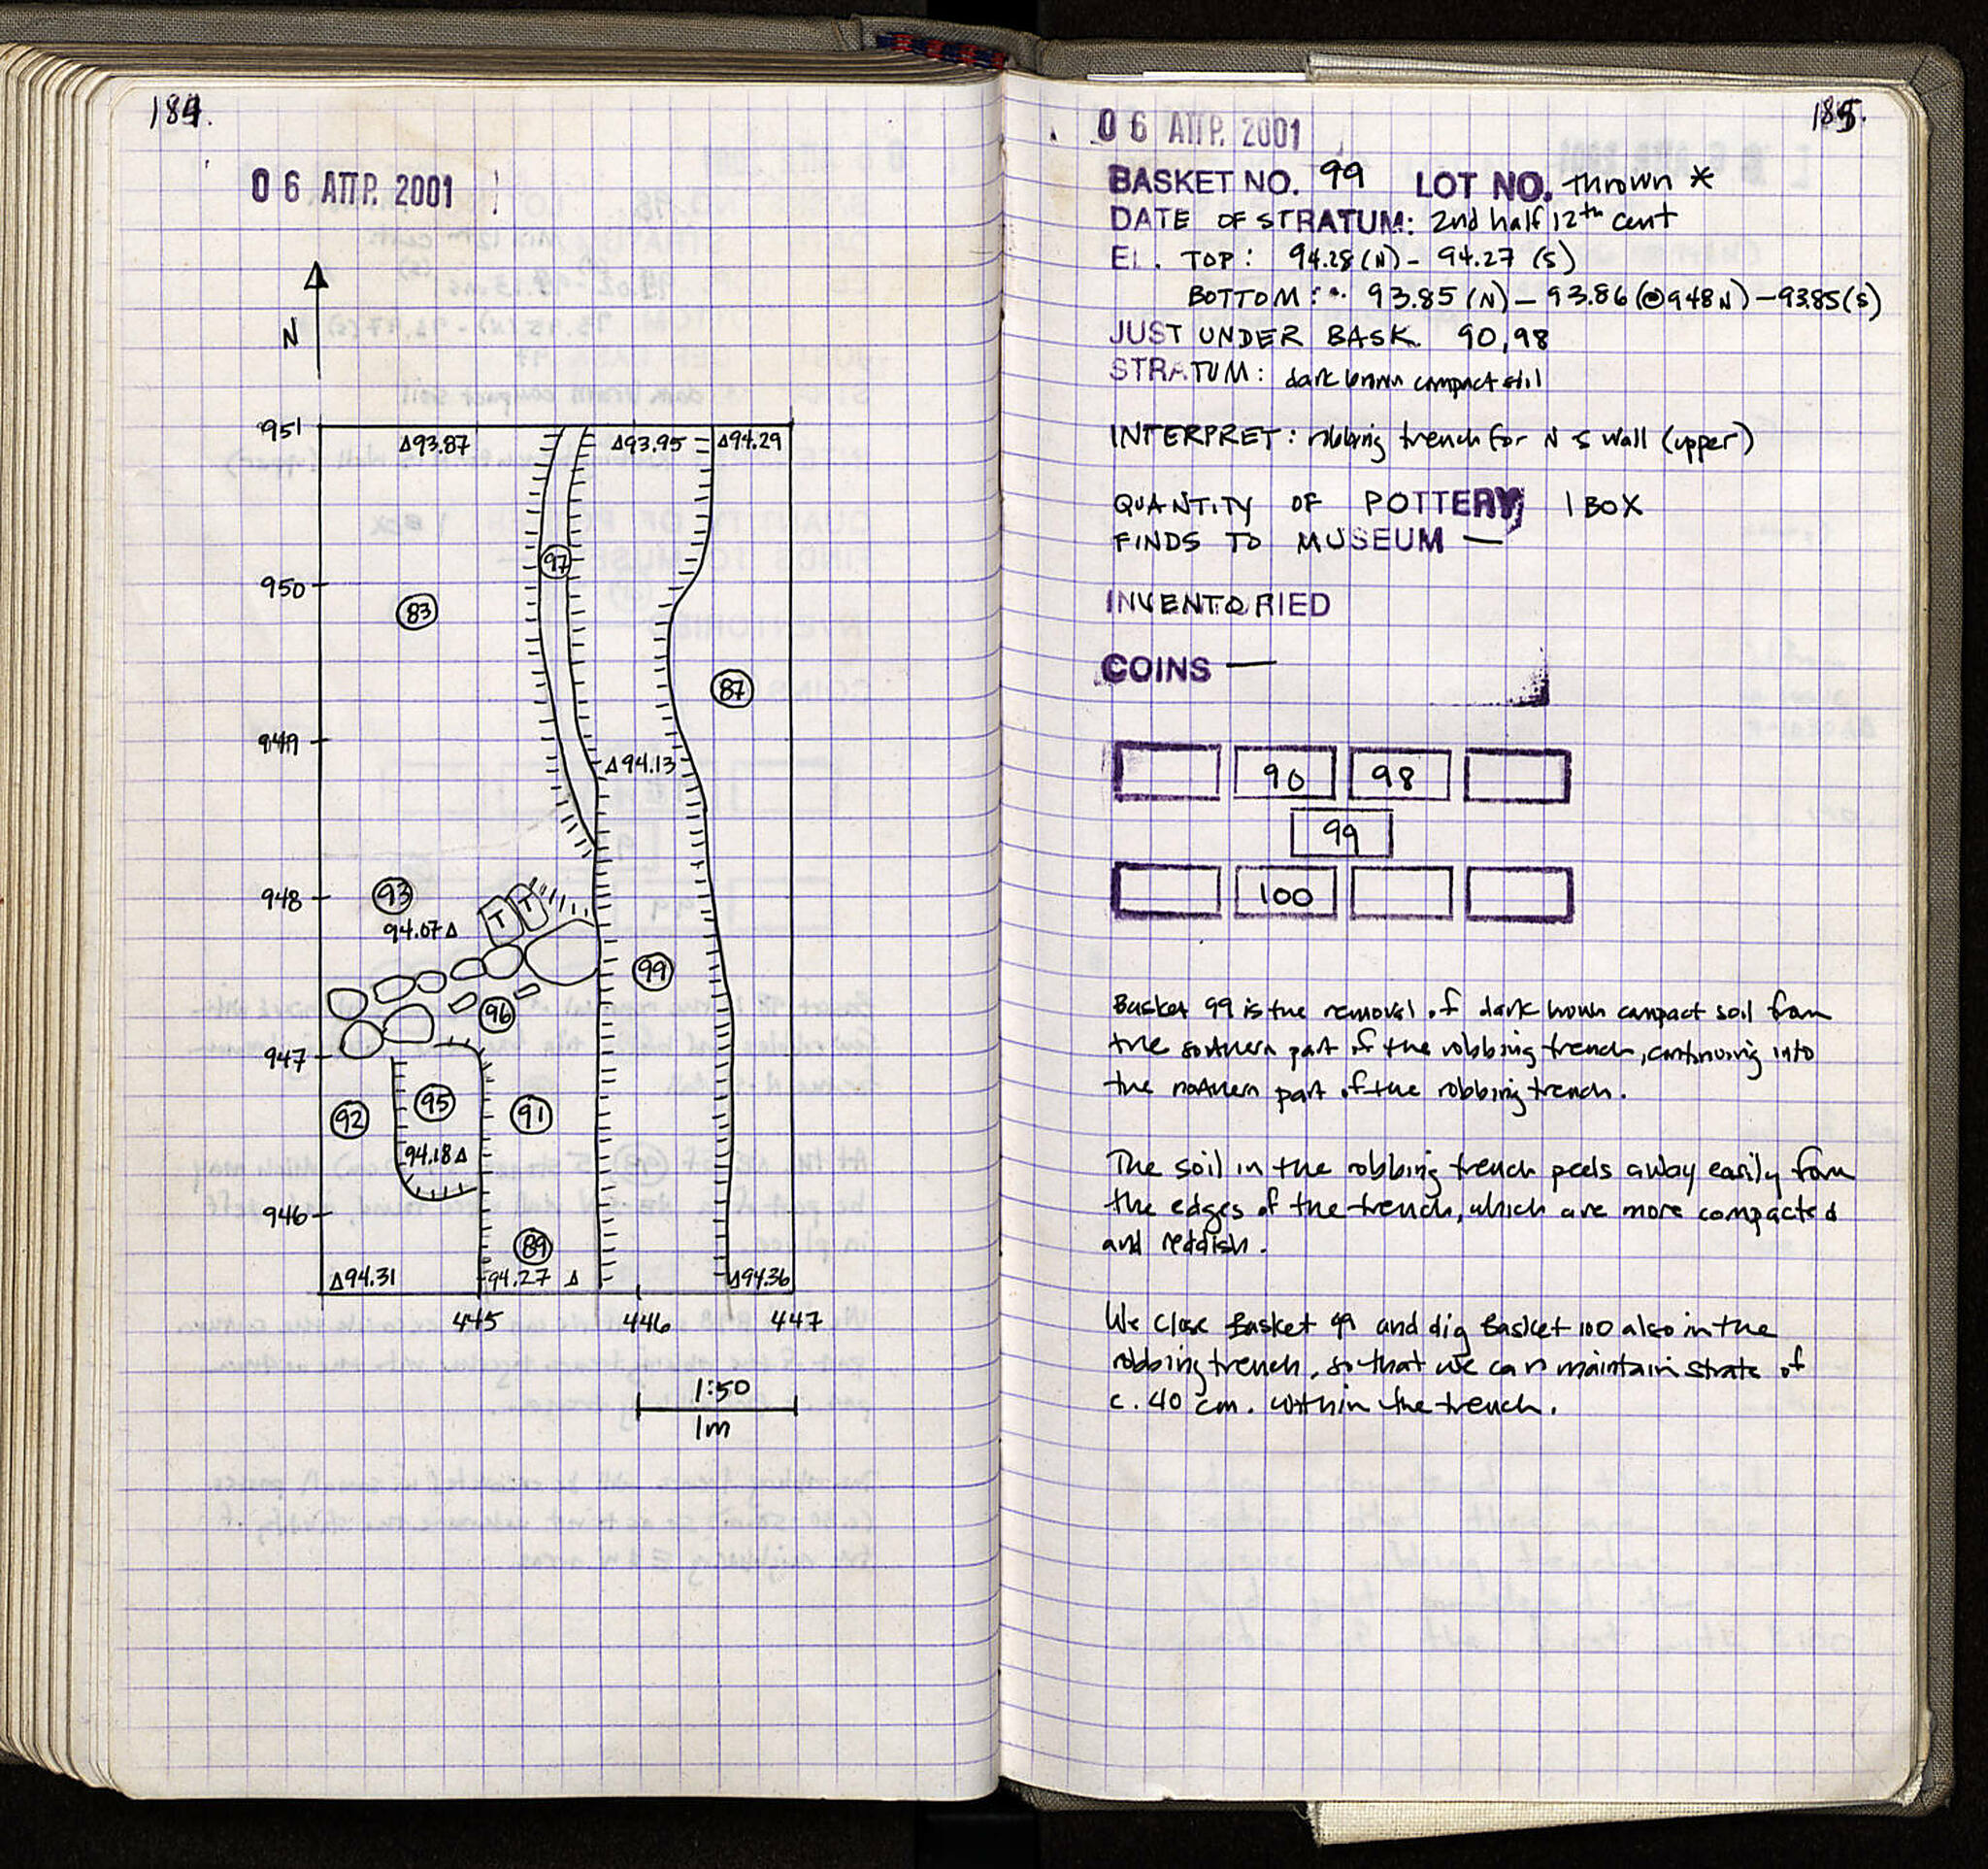 184.
06 ΑΠΡ. 2001
N
951
Δ93.87
Δ93.95
Δ94.29
97
950
83
87
949
Δ94.13
93
948
94.07Δ
T
T
99
96
947
95
92
91
94.18Δ
946
89
Δ94.31
94.27 Δ
Δ94.36
445
446
447
1:50
1m
185.
06 ΑΠΡ. 2001
BASKET NO. 99 LOT NO. thrown *
DATE OF STRATUM: 2nd half 12th cent
EL. TOP: 94.28 (N) - 94.27 (S)
BOTTOM: 93.85 (N) - 93.86 (@948N) - 93.85 (S)
JUST UNDER BASK. 90, 98
STRATUM: dark brown compact soil
INTERPRET: robbing trench for N S wall (upper)
QUANTITY OF POTTERY 1 BOX
FINDS TO MUSEUM —
INVENTORIED
COINS —
90 98
99
100
Basket 99 is the removal of dark brown compact soil from
the southern part of the robbing trench, continuing into
the northern part of the robbing trench.
The soil in the robbing trench peels away easily from
the edges of the trench, which are more compacted
and reddish.
We close Basket 99 and dig Basket 100 also in the
robbing trench, so that we can maintain strata of
c. 40 cm. within the trench.